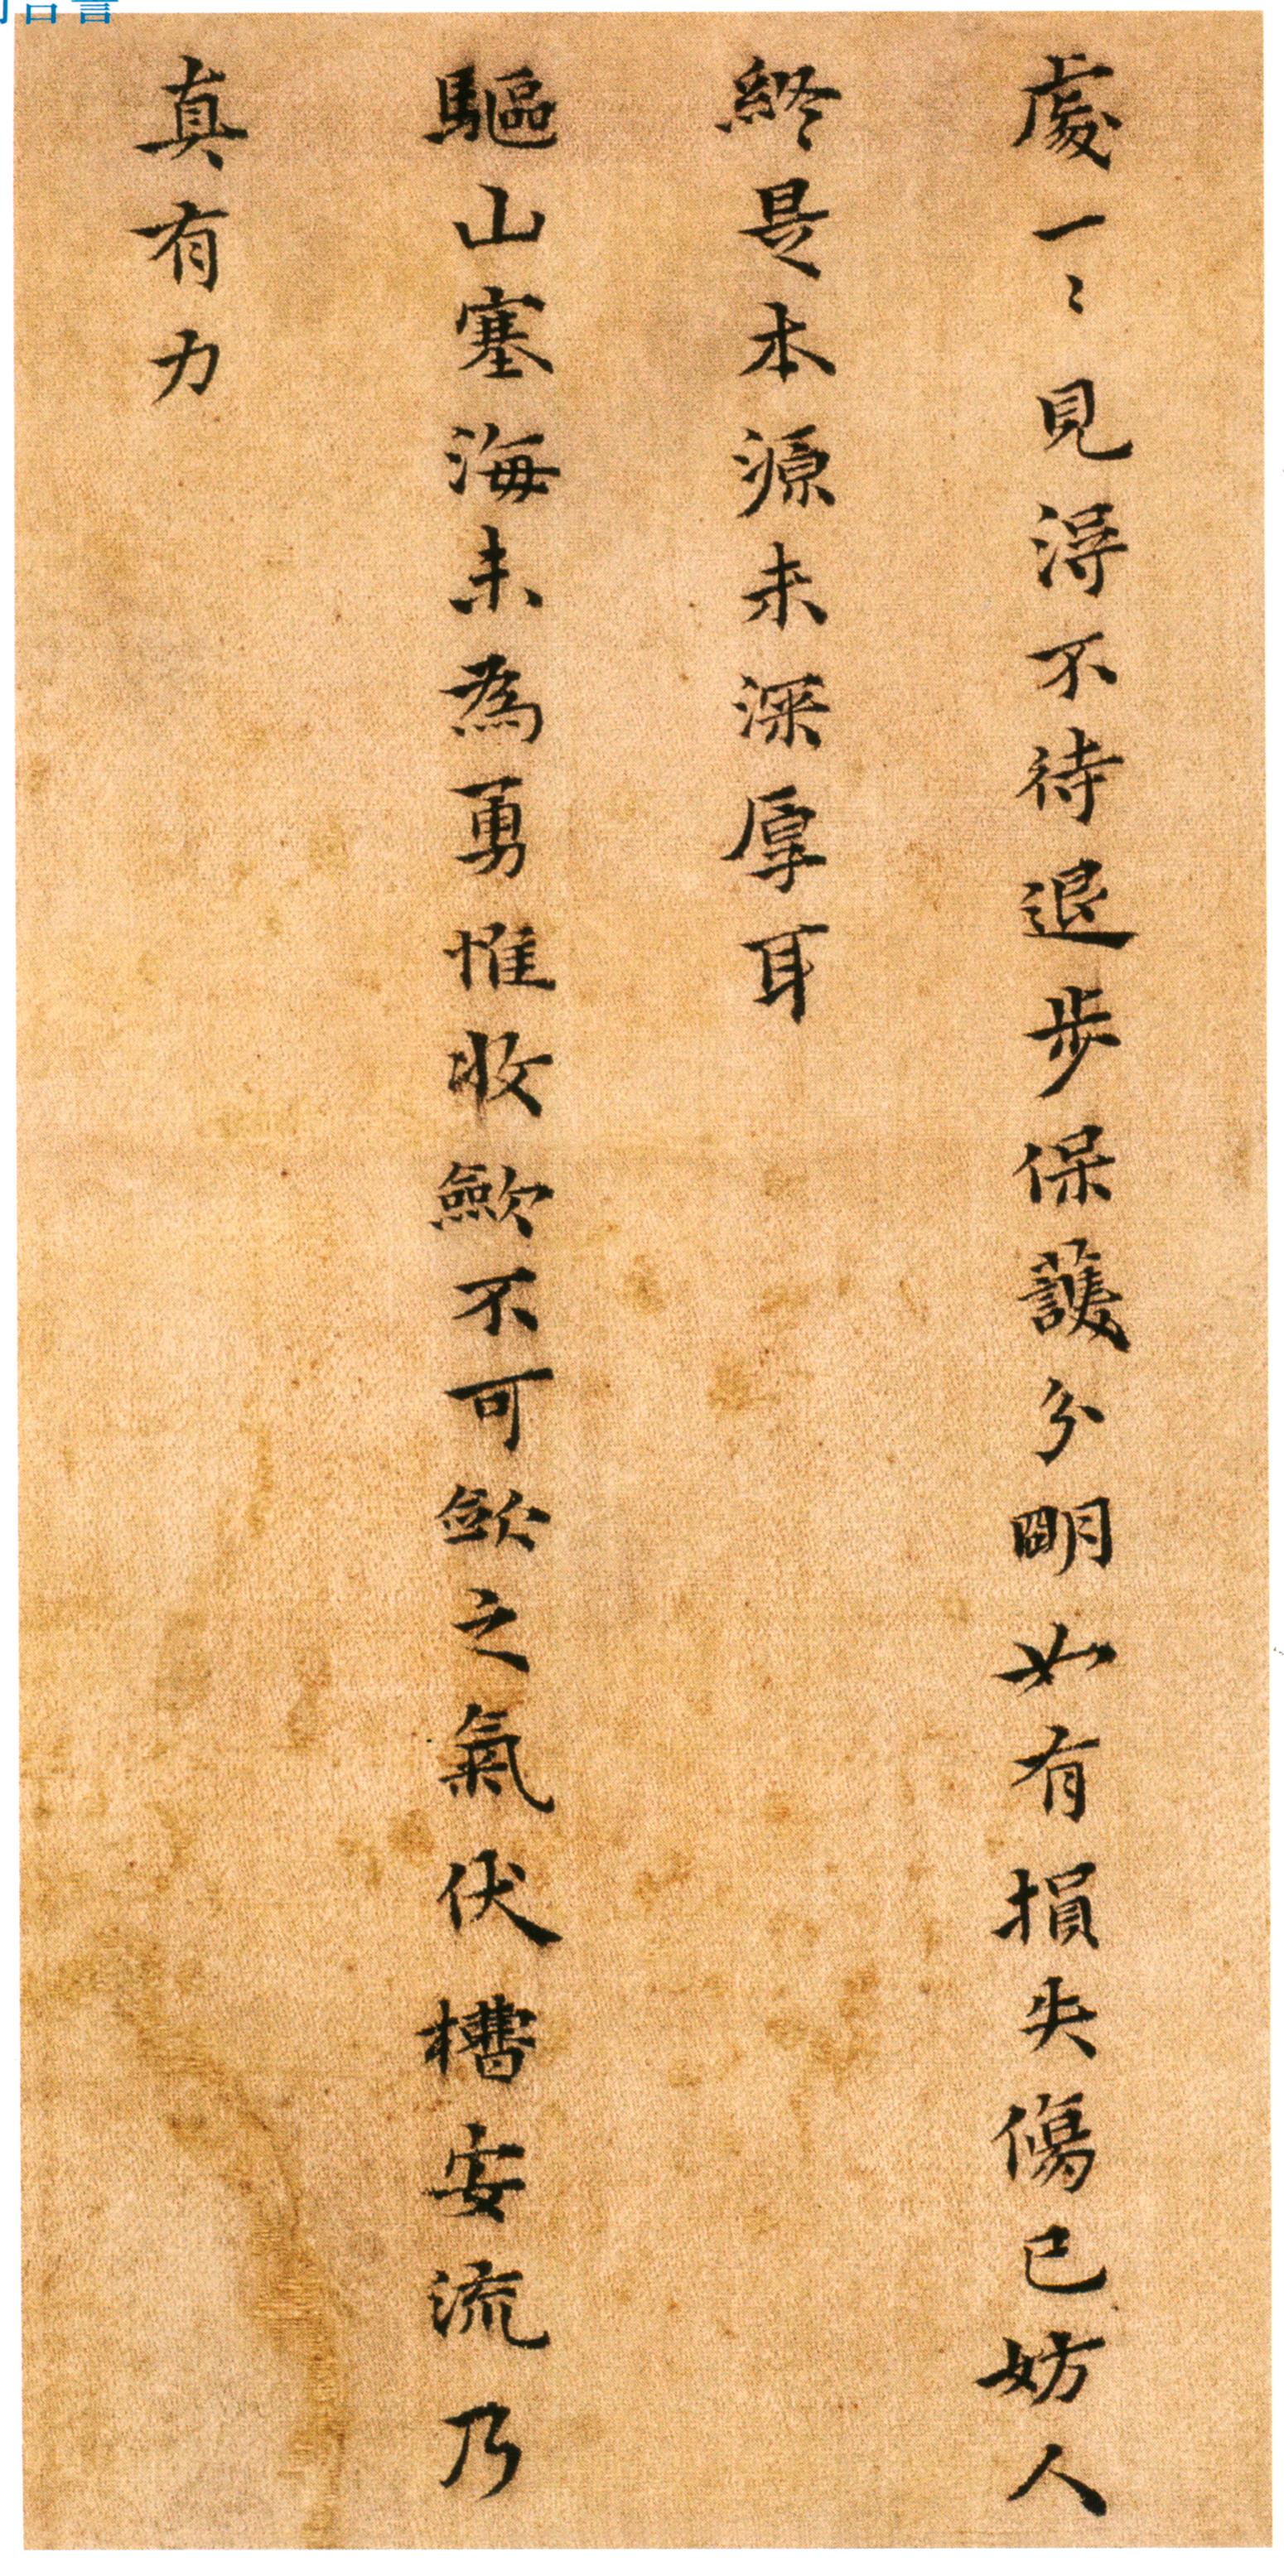 處一〻見得不待退步保護分明如有損失傷己妨人
終是本源未深厚耳
驅山塞海未為勇惟收歛不可歛之氣伏槽安流乃
真有力